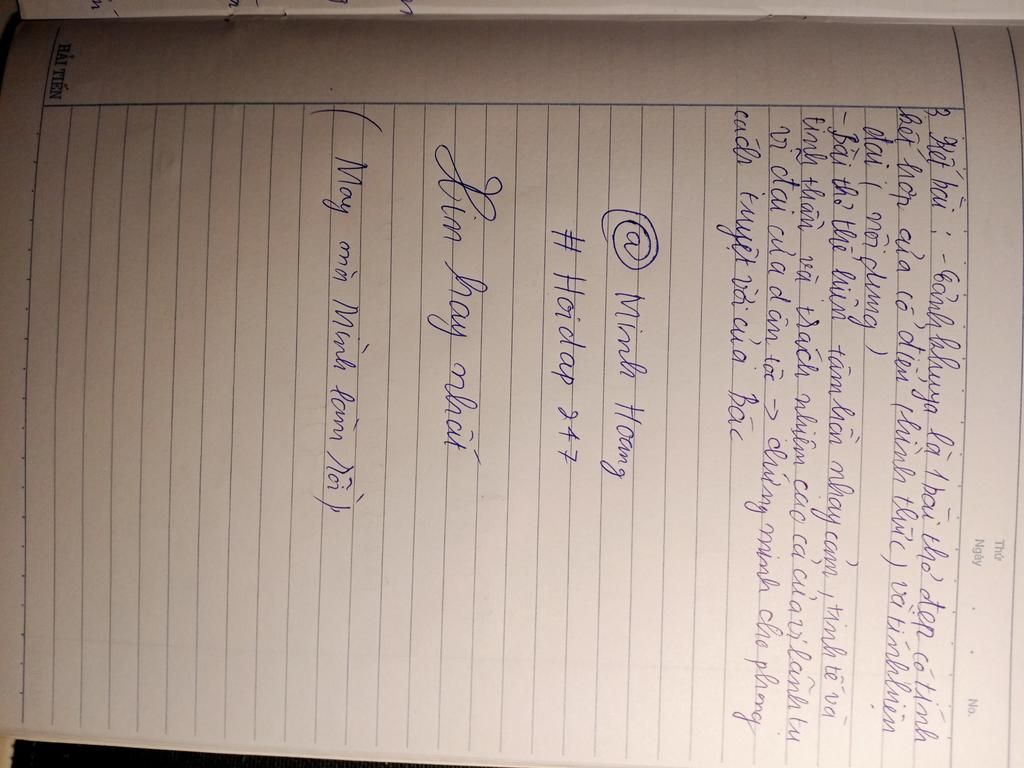 Thứ
Ngày
No.
3, Kết bài : - Cảnh khuya là 1 bài thơ đẹp có tính
kết hợp của cổ điển (hình thức) và tính hiện
đại ( nội dung)
- Bài thơ thể hiện tâm hồn nhạy cảm, tinh tế và
tinh thần và trách nhiệm cao cả của vị lãnh tụ
vĩ đại của dân tộc -> chứng minh cho phong
cách tuyệt vời của Bác
@ Minh Hoang
# Hoidap 247
Xin hay nhất
( May mà Mình làm rồi)
HẢI TIẾN